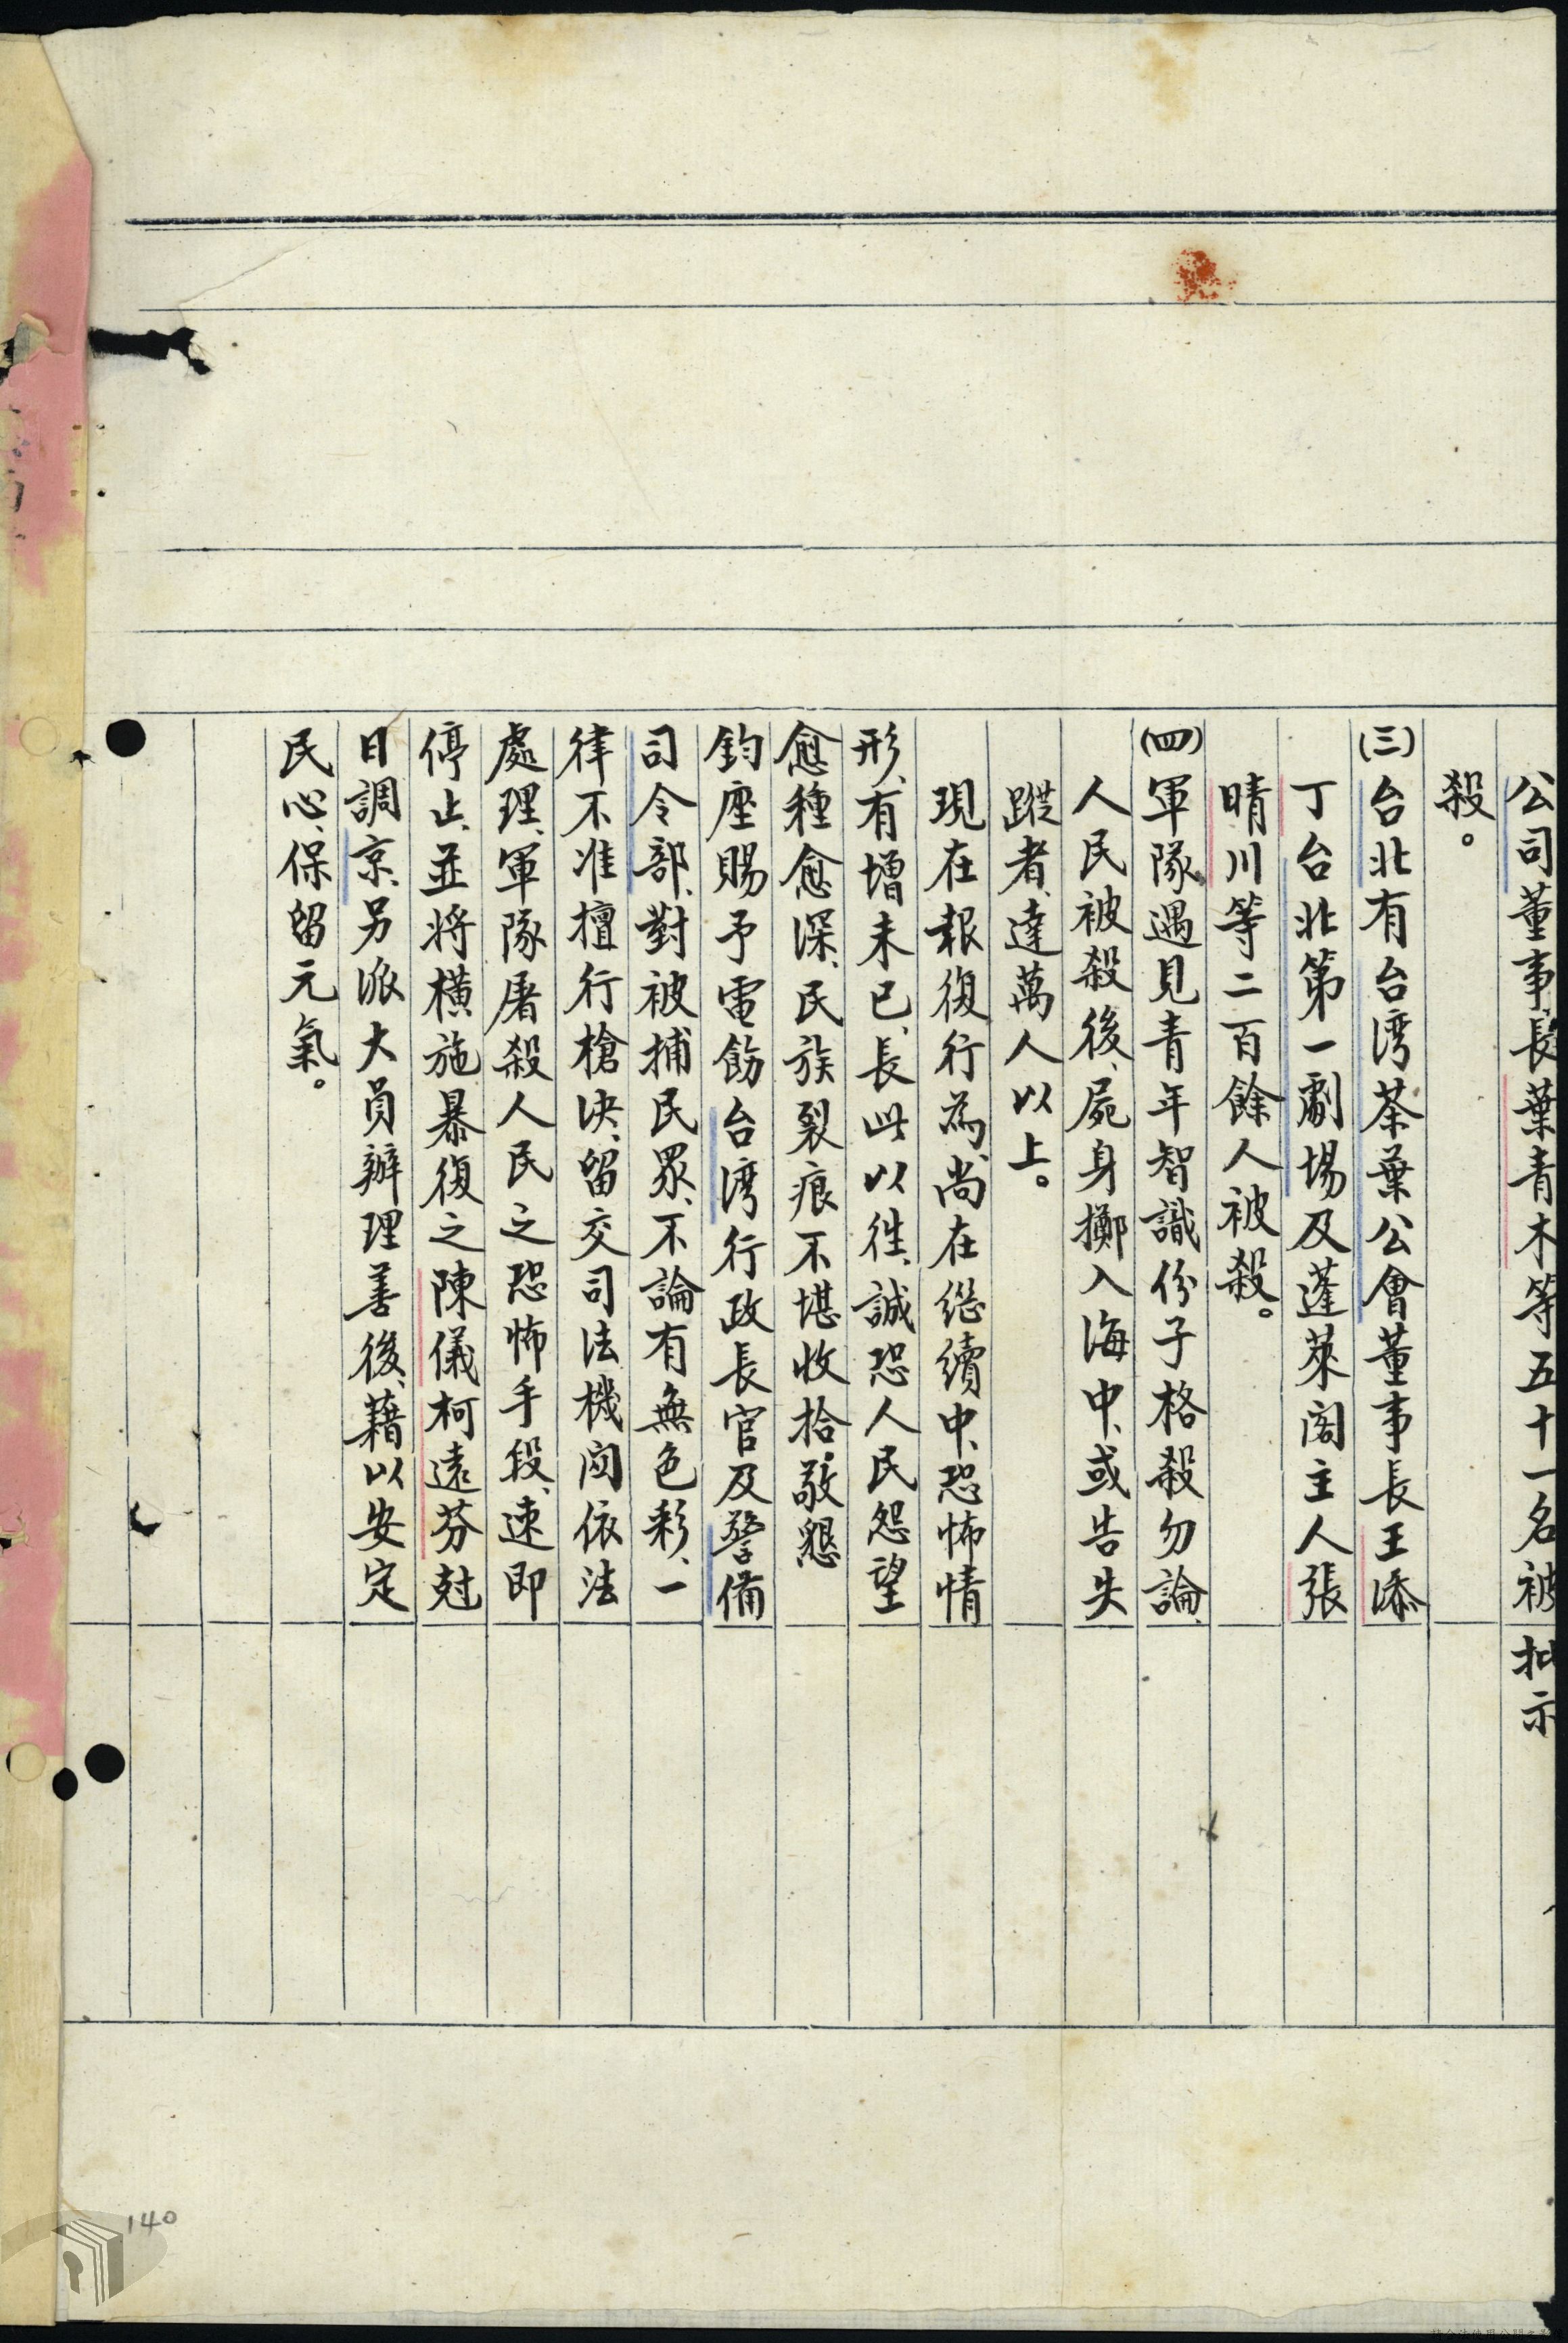 公司董事長葉青木等五十一名被
殺。
(三)台北有台湾茶葉公會董事長王添
丁台北第一劇場及蓬萊閣主人張
晴川等二百餘人被殺。
(四)軍隊遇見青年智識份子格殺勿論、
人民被殺後、屍身擲入海中、或告失
蹤者、達萬人以上。
現在報復行為、尚在継續中、恐怖情
形、有增未已、長此以往、誠恐人民怨望
愈種愈深、民族裂痕不堪收拾、敬懇
鈞座賜予電飭台湾行政長官及警備
司令部、對被捕民眾、不論有無色彩、一
律不准擅行槍決、留交司法機関依法
處理、軍隊屠殺人民之恐怖手段、速即
停止、並将橫施暴復之陳儀柯遠芬尅
日調京、另派大員辦理善後、藉以安定
民心、保留元氣。
批示
140